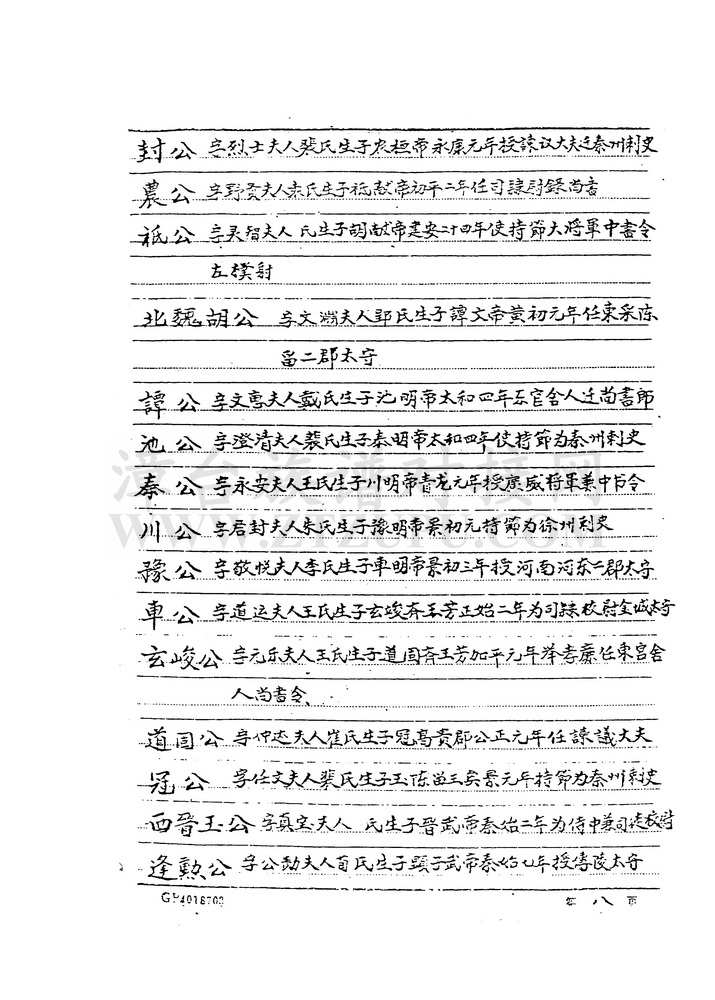 封公 字烈士夫人裴氏生子农桓帝永康元年授諫议大夫迁秦州刺史
農公 字野贡夫人袁氏生子祗献帝初平二年任司隸尉錄尚書
祗公 字灵智夫人 氏生子胡献帝建安二十四年使持節大將軍中書令
左樸射
北魏胡公 字文渊夫人郅氏生子譚文帝黄初元年任東采陈
留二郡太守
譚公 字文惠夫人戴氏生子池明帝太和四年东官舍人迁尚書郎
池公 字澄清夫人裴氏生子秦明帝太和四年使持節为秦州刺史
秦公 字永安夫人王氏生子川明帝青龙元年授廣威將軍兼中书令
川公 字君封夫人朱氏生子豫明帝景初元持節为徐州刺史
豫公 字敬悦夫人李氏生子車明帝景初三年授河南河东二郡太守
車公 字道运夫人王氏生子玄峻斉王芳正始二年为司隸校尉金城太守
玄峻公 字元乐夫人王氏生子道固斉王芳加平元年举孝廉任東宮舍
人尚書令
道固公 字仲达夫人崔氏生子冠高贵郡公正元年任諫議大夫
冠公 字任文夫人裴氏生子玉陈畄王奂景元年持節为秦州刺史
西晉玉公 字真宝夫人 氏生子晉武帝秦始二年为侍中兼司徒校尉
逢勲公 字公勲夫人百氏生子顕子武帝秦始七年授 太守
GP4018702 第八页
漳台族谱对接网
WWW.ZTZUPU.COM